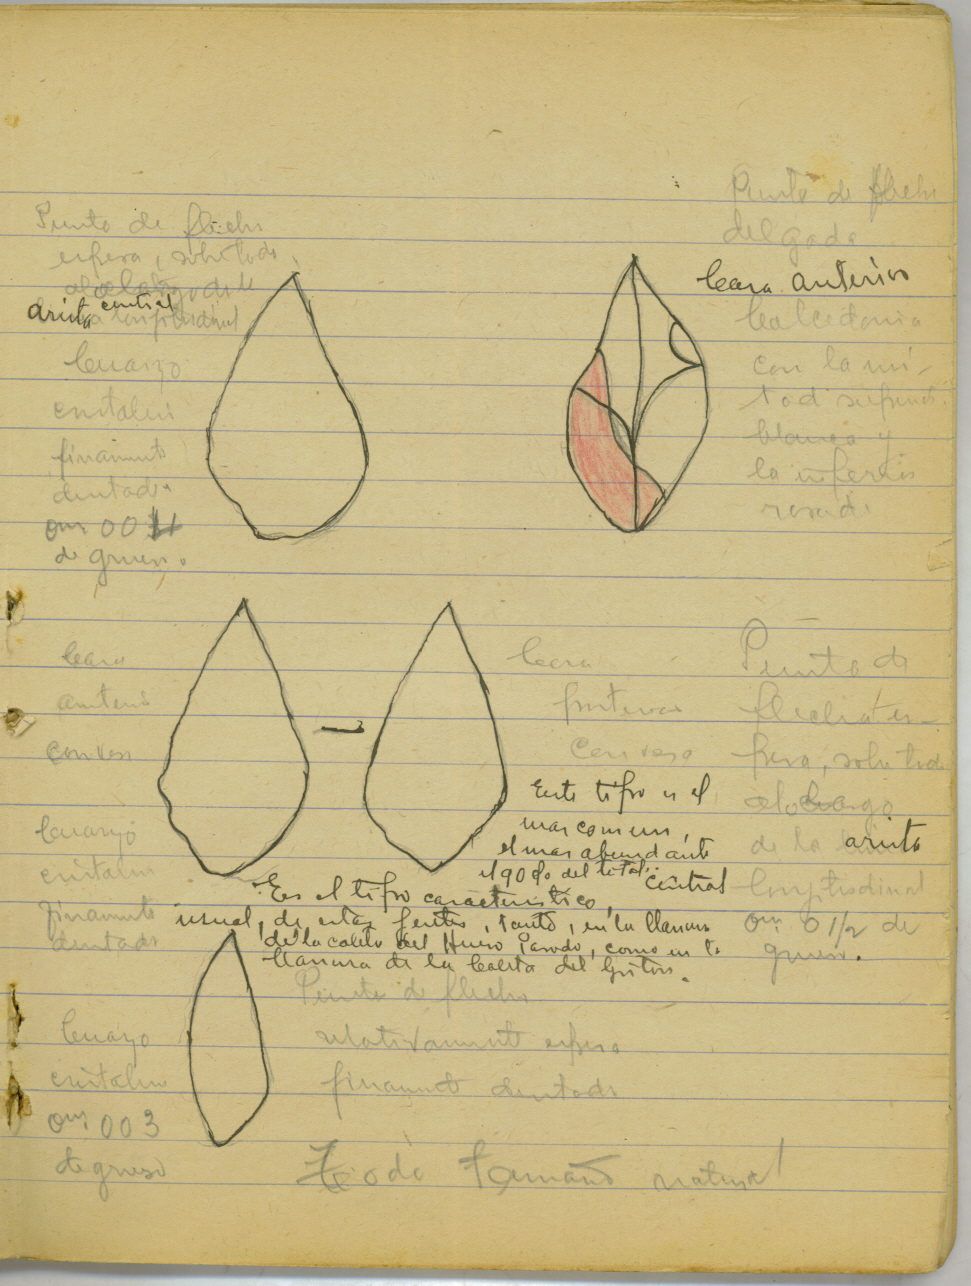 Punta de flecha
espesa, sobre todo,
a lo largo de la
arista central
longitudinal
Cuarzo
cristalino
finamente
dentada
de grueso.
Punta de flecha
delgada
Cara anterior
Calcedonia
con la mi-
tad superior
blanca y
la inferior
rosada
Cara
anterior
convexa
Cuarzo
cristalino
finamente
dentada
Cara
posterior
convexa
Punta de
flecha es-
pesa, sobre todo
a lo largo
de la arista
central
longitudinal
0m. 0 1/2 de
grueso.
Este tipo es el
mas comun,
el mas abundante
el 90 % del total.
Es el tipo característico,
usual, de estas gentes, tanto, en la llanura
de la caleta del Hueso Parado, como en la
llanura de la Caleta del Gritón.
Cuarzo
cristalino
0m. 003
de grueso
Punta de flecha
relativamente espesa
finamente dentada
Todo tamaño natural